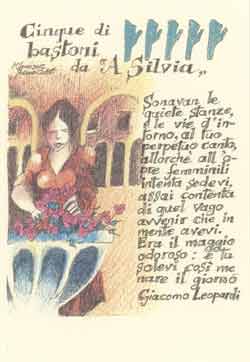 Cinque di
bastoni
da "A Silvia„
Sonavan le
quiete stanze,
e le vie d'in-
torno, al tuo
perpetuo canto,
allorché all'o-
pre femminili
intenta sedevi,
assai contenta
di quel vago
avvenir che in
mente avevi.
Era il maggio
odoroso: e tu
solevi così me
nare il giorno
Giacomo Leopardi